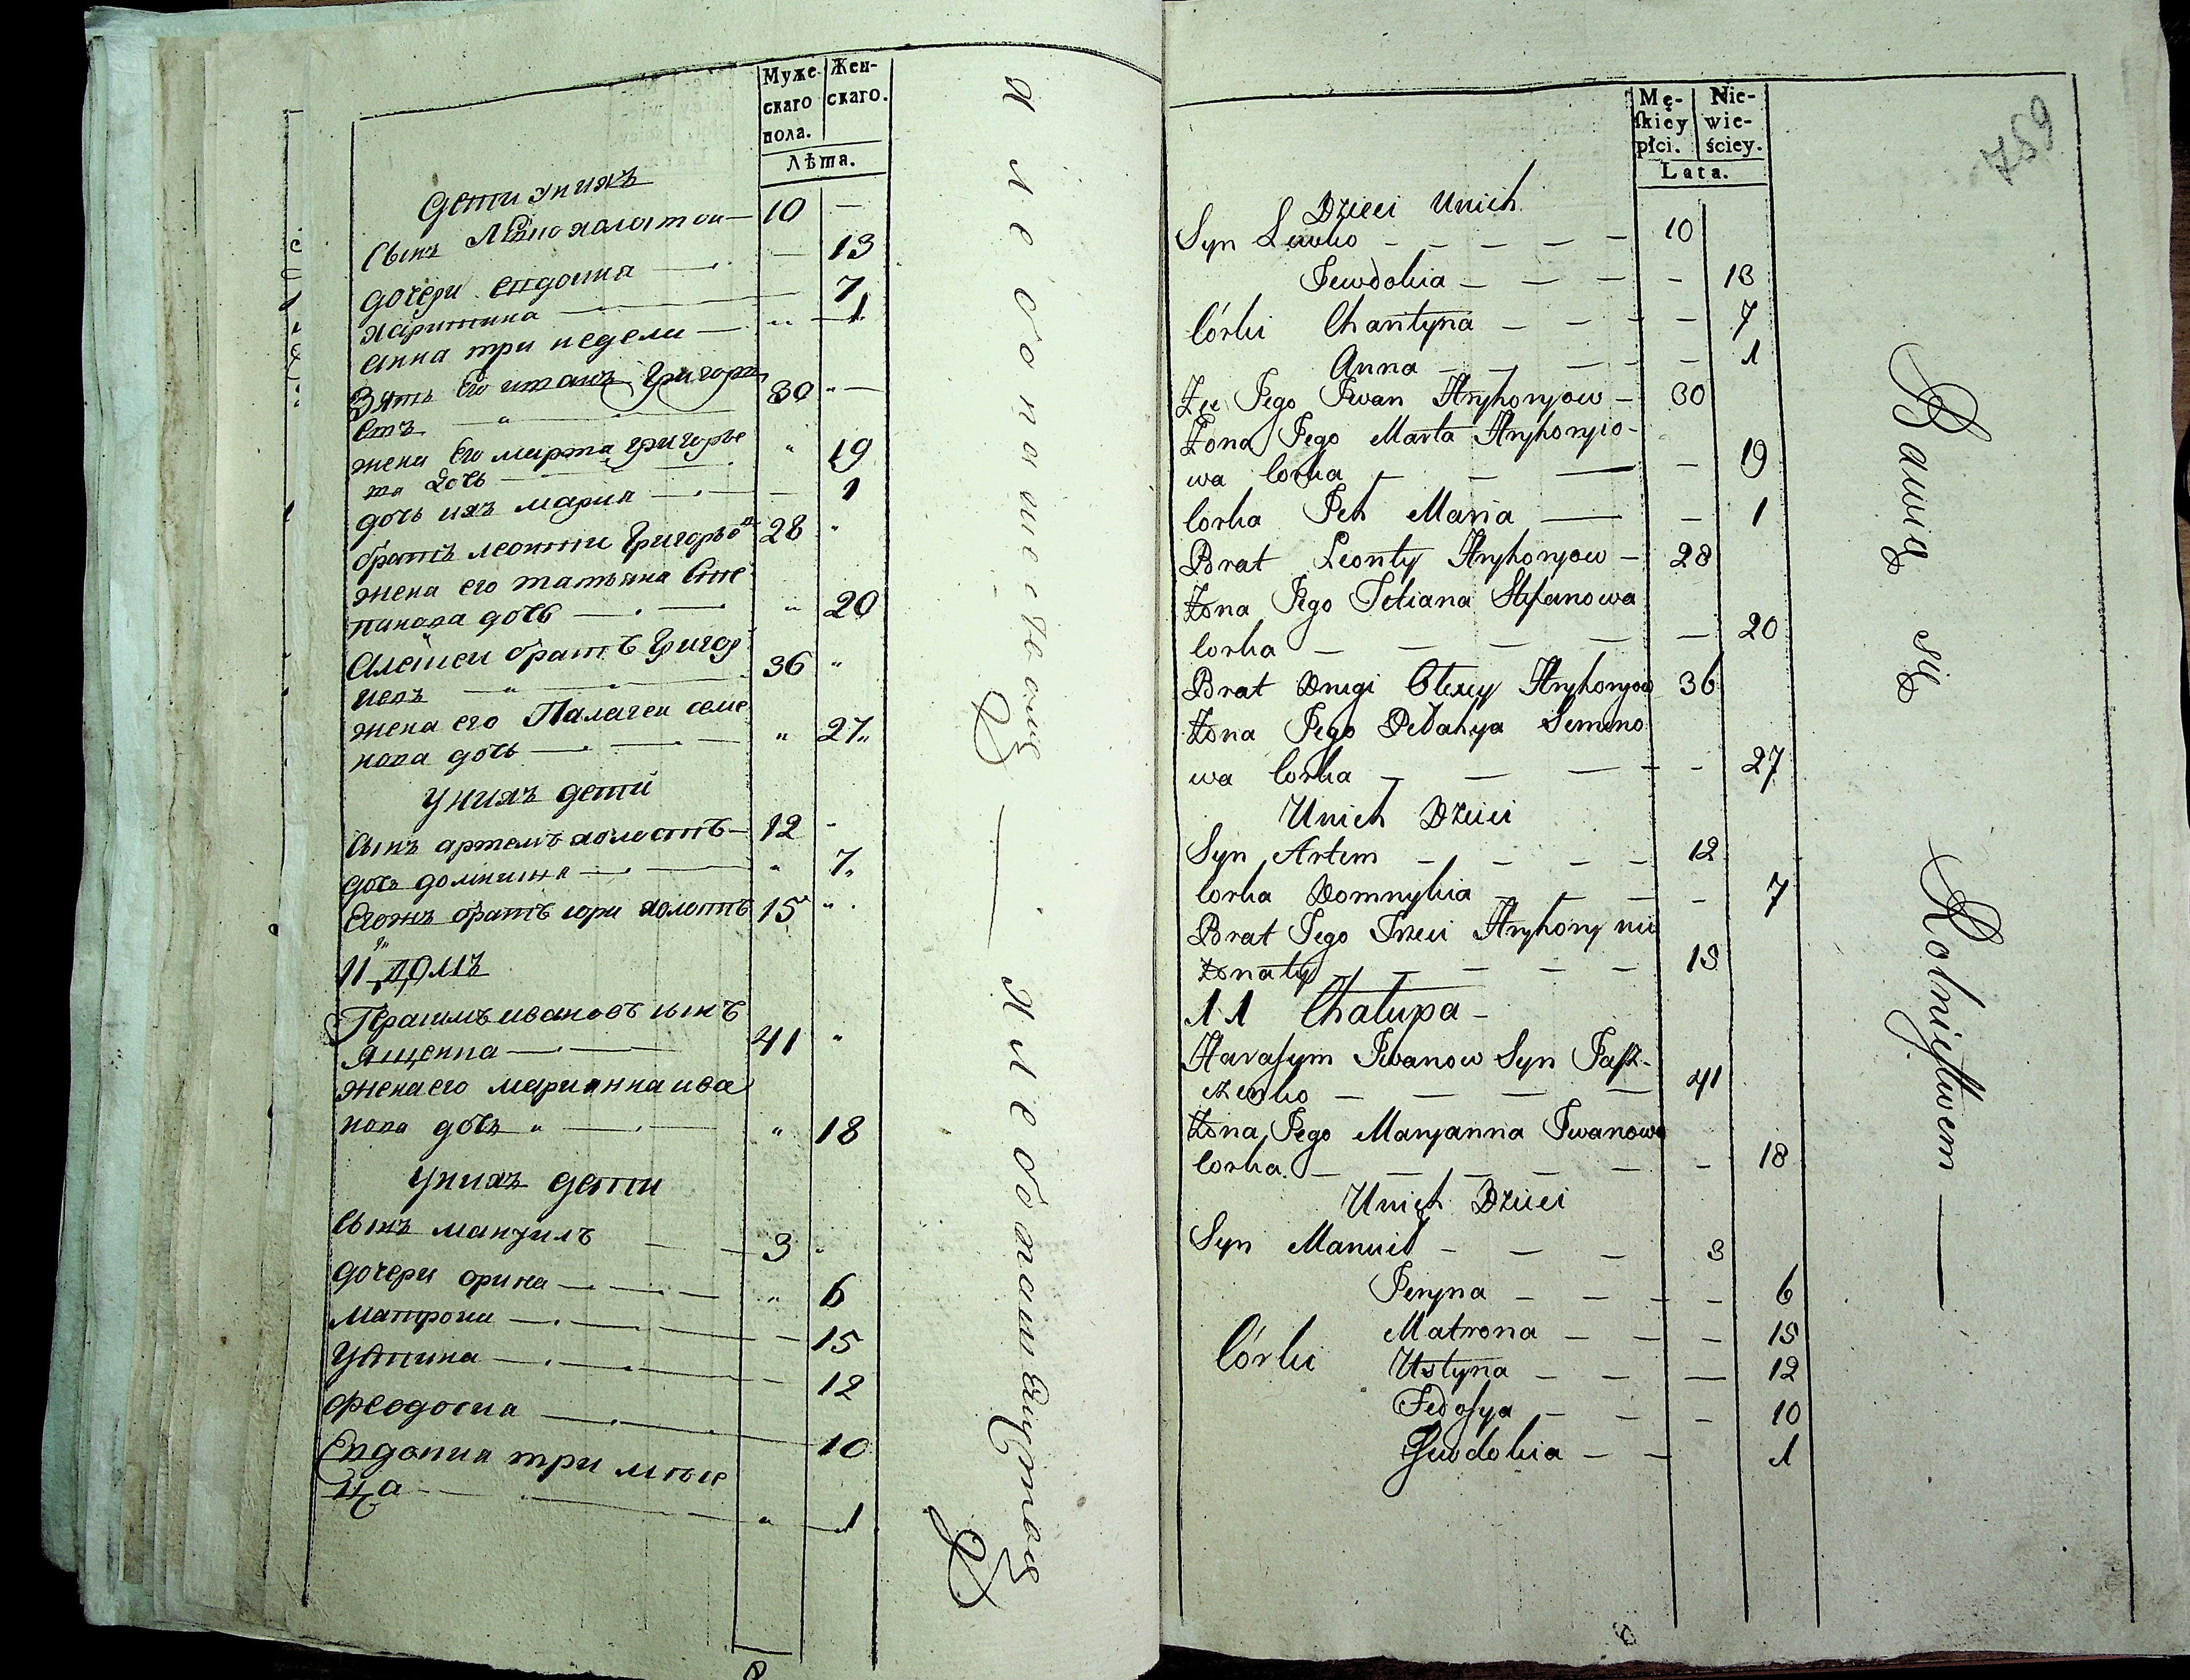 Муже- Жен-
скаго скаго.
пола.
Лѣта.
дети униxъ
сынъ Левко холостои — 10 —
дочери евдокиа — — 13
харитина — 7
анна три недели — 1
Зять Его иванъ Григорь 30
евъ
жена Его марта григорье
ва дочь — 19
дочь ихъ мариа — 1
братъ леонтии Григорьев 28
жена его татьяна Сте
панова дочь — 20
Алексеи братъ Григор
иевъ 36
жена его Палагея семе
нова дочь — 27
У нихъ дети
сынъ артемъ холостъ — 12
дочь домникиа — 7
Егожъ братъ юри холостъ 15
11 домъ
Герасимъ ивановъ сынъ
Ященка — 41
жена его марианна ива
нова дочь — 18
У нихъ дети
сынъ мануилъ — 3
дочери орина — 6
матрона — 15
устина — 12
феодосиа — 10
Евдокиа три месе
ца — 1
Хлебопашествомъ —
Хлебопашествомъ
Mę- Nie-
ſkiey wie-
płci. ściey.
Lata.
759
Dzieci Unich
Syn Lewko — — — — — 10
Jewdokia — — — — 13
Córki Charityna — — — — 7
Anna — — — — 1
Zięć Jego Iwan Hryhoryow — 30
Żona Jego Marta Hryhoryo-
wa Corka — — — — 19
Corka Ich Maria — — 1
Brat Leonty Hryhoryow — 28
Żona Jego Tetiana Stefanowa
Corka — — — — — 20
Brat Drugi Olexey Hryhoryow 36
Żona Jego Pełahya Semeno
wa Corka — — — — 27
Unich Dzieci
Syn Artem — — — — 12
Corka Domnykia — — — — 7
Brat Jego Trzeci Hryhory nie
żonaty — — — — 15
11 Chałupa —
Harasym Iwanow Syn Jaſz-
czenko — — — — 41
Żona Jego Maryanna Iwanowa
Corka — — — — — — 18
Unich Dzieci
Syn Manuił — — — 3
Jeryna — — — — — 6
Matrona — — — 15
Córki Ustyna — — — 12
Fedoſya — — — 10
Jewdokia — — 1
Bawią się Rolnictwem —